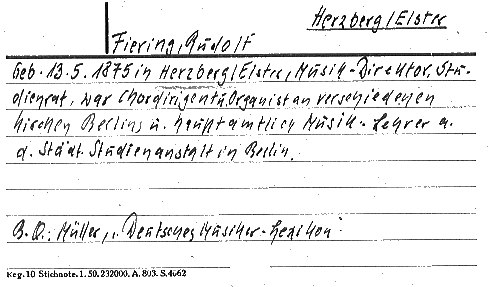 Herzberg/Elster
Fiering, Rudolf
Geb. 13.5.1875 in Herzberg/Elster, Musik-Direktor, Stu-
dienrat, war Chordirigent u. Organist an verschiedenen
Kirchen Berlins u. hauptamtlich Musik-Lehrer a.
d. Städt. Studienanstalt in Berlin.
B.Q.: Müller, „Deutsches Musiker-Lexikon"
Reg. 10 Stichnote. 1. 50. 232000. A. 803. S. 4662